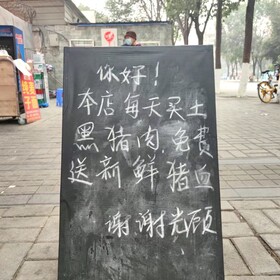 你好!
本店每天买土
黑猪肉,免费
送新鲜猪血
谢谢光顾